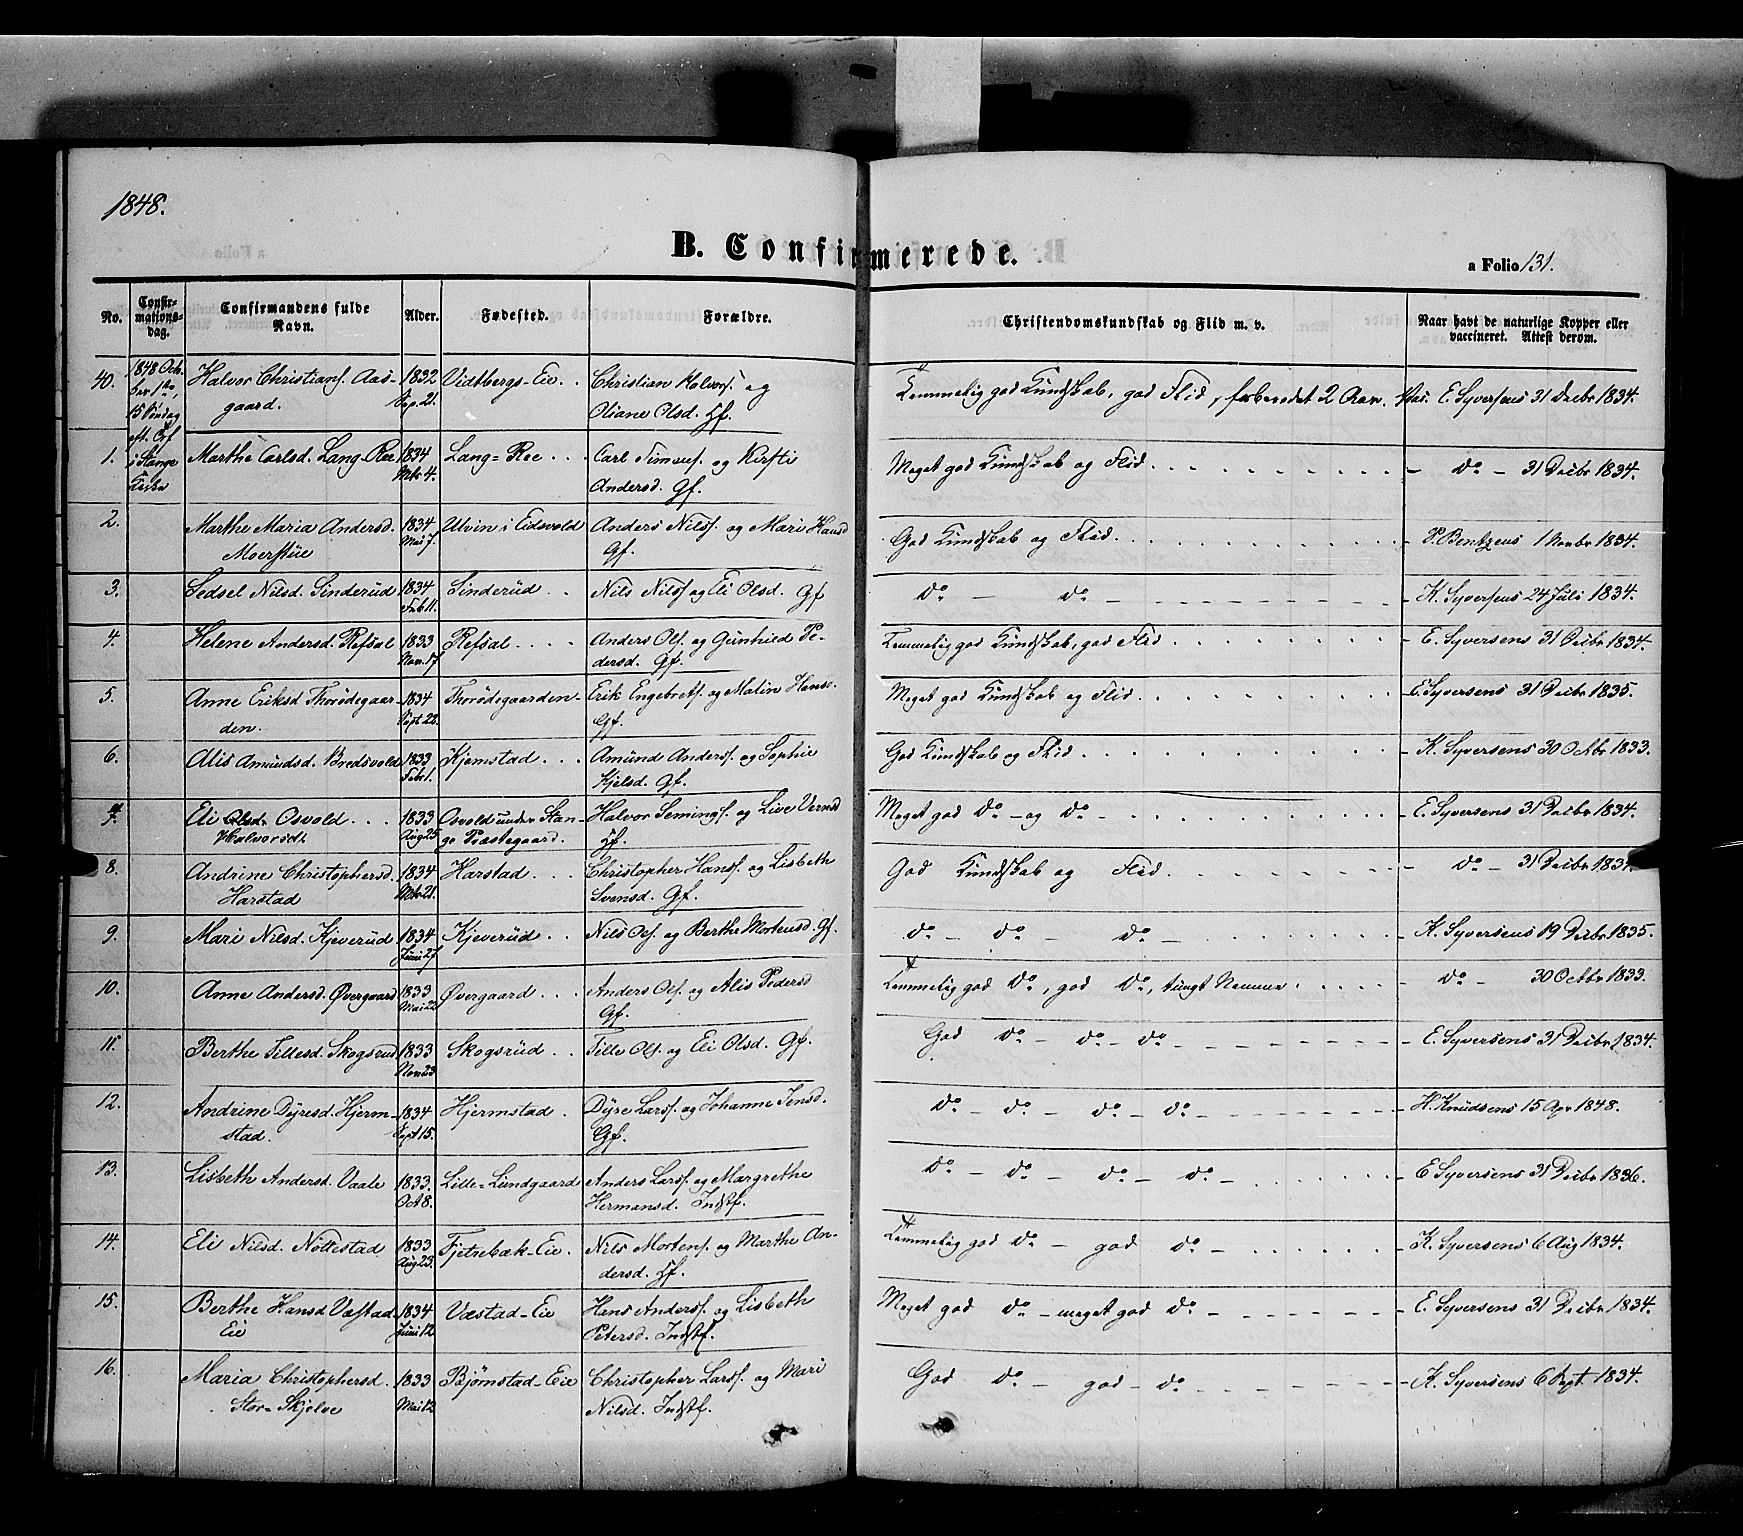 1848.
B. Confirmerede.
a Folio 131.
No. Confirmationsdag. Confirmandens fulde Navn. Alder. Fødested. Forældre. Christendomskundskab og Flid m. v. Naar havt de naturlige Kopper eller vaccineret. Attest derom.
40. 1848 Octber 1ste, Halvor Christians. Aas- 1832 Vidtbergs-Eie.. Christian Halvors. og Temmelig god Kundskab, god Flid, forberedet 2 Aar. E. Syversens 31 Decbr 1834.
15 Søndag gaard. Sep. 21. Oliane Olsd. Hf.
eft. Trf
1. i Stange Marthe Carlsd. Lang-Ree 1834 Lang-Ree ... Carl Simens. og Kirsti Meget god Kundskab og Flid. do - 31 Decbr 1834.
Kirke Mts 4. Andersd. Gf.
2. Marthe Maria Andersd. 1834 Ulvin i Eidsvold Anders Nils. og Mari Hansd God Kundskab og Flid. P. Bentzens 1 Novbr 1834.
Moerstue Mai 7. Gf.
3. Sedsel Nilsd. Sinderud 1834 Sinderud .. Nils Nils. og Eli Olsd. Gf do - do - K. Syversens 24 Juli 1834.
Feb 11.
4. Helene Andersd. Refsal 1833 Refsal .... Anders Ols. og Gunhild Pe- Temmelig god Kundskab, god Flid E. Syversens 31 Decbr 1834.
Nov. 17 dersd. Gf.
5. Anne Eriksd Thorødegaar- 1834 Thorødegaarden- Erik Engebrets. og Malin Hansd. Meget god Kundskab og Flid. E. Syversens 31 Decbr 1835.
den. Sept 22. Gf.
6. Alis Amundsd. Bredsvold 1833 Kjemstad ... Amund Anders. og Sophie God Kundskab og Flid. K. Syversens 30 Octbr 1833.
Feb 1. Kjelsd. Gf.
7. Eli Olsd. Osvold ... 1833 Osvold under Stan- Halvor Semings. og Live Vernsd Meget god do - og do E. Syversens 31 Decbr 1834.
Halvorsdt. Aug 25 ge Præstegaard. Hf.
8. Andrine Christophersd. 1834 Harstad ... Christopher Hans. og Lisbeth God Kundskab og Flid. do - 31 Decbr 1834.
Harstad Mts 21. Svensd. Gf.
9. Mari Nilsd. Kjeverud 1834 Kjeverud .. Nils Ols. og Berthe Mortensd. Gf. do - do - do - K. Syversens 19 Decbr 1835.
Juni 27
10. Anne Andersd. Øvergaard 1833 Øvergaard ... Anders Ols. og Alis Pedersd Temmelig god do, god do, tungt Nemme do - 30 Octbr 1833.
Mai 22 Gf.
11. Berthe Tillesd. Skogsrud 1833 Skogsrud .. Tille Ols. og Eli Olsd. Gf. God do - do - do - E. Syversens 31 Decbr 1834.
Nov 23
12. Andrine Dyresd. Hjerm- 1834 Hjermstad. Dyre Lars. og Johanne Jensd. do - do - do - do - H. Knudsens 15 Apr 1848.
stad. Sept 15. Gf.
13. Lisbeth Andersd. Vaale 1833. Lille-Lundgaard Anders Lars. og Margrethe do - do do - do - E Syversens 31 Decbr 1836.
Oct 8. Hermansd. Indstf.
14. Eli Nilsd. Nøttestad 1833 Tjernebæk-Eie. Nils Mortens. og Marthe An- Temmelig god do - god do - K. Syversens 6 Aug 1834.
Aug 23. dersd. Hf.
15. Berthe Hansd Væstad 1834 Væstad-Eie Hans Anders. og Lisbeth Meget god do - meget god do - E. Syversens 31 Decbr 1834.
Eie Juni 12 Petersd. Indstf.
16. Maria Christophersd. 1833 Bjørnstad-Eie Christopher Lars. og Mari God do - god - do - K. Syversens 6 Sept. 1834.
Stor-Skjelve Mai 12 Nilsd. Indstf.